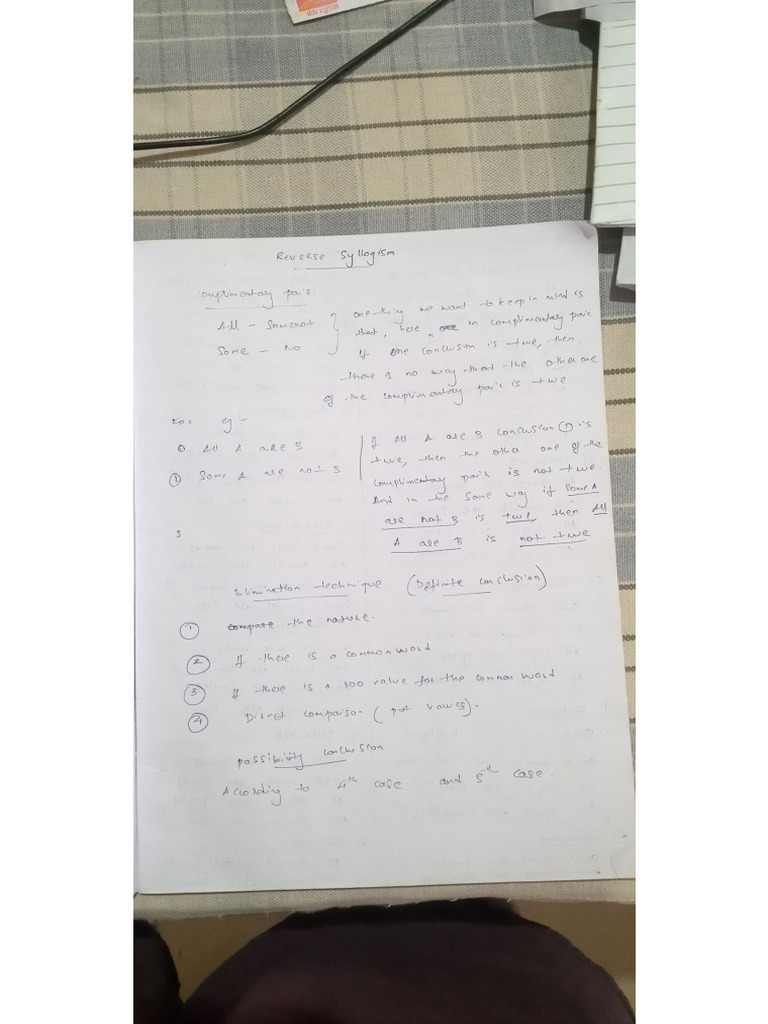 Reverse Syllogism
omplimentary pair.
All - Somenot
Some - No
one thing we want to keep in mind is
that, here in complimentary pair
If one conclusion is true, then
there is no way that the other one
of the complimentary pair is true
For eg :-
① All A are B
② Some A are not B
If All A are B conclusion ① is
true, then the other one of the
complimentary pair is not true.
And in the same way if Some A
are not B is true, then All
A are B is not true
3
Elimination technique. (Definite conclusion)
① compare the nature.
② If there is a common word
③ If there is a 100 value for the common word
④ Direct comparison ( put values).
possibility conclusion
According to 4th case and 5th case.